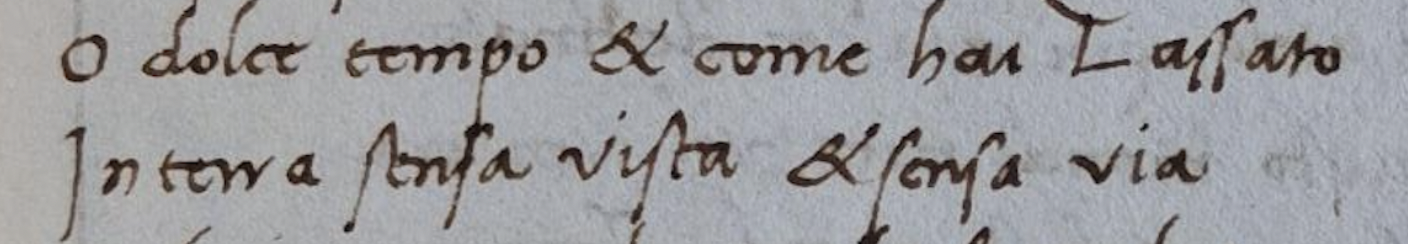 O dolce tempo & come hai Lassato
In terra sensa vista & sensa via